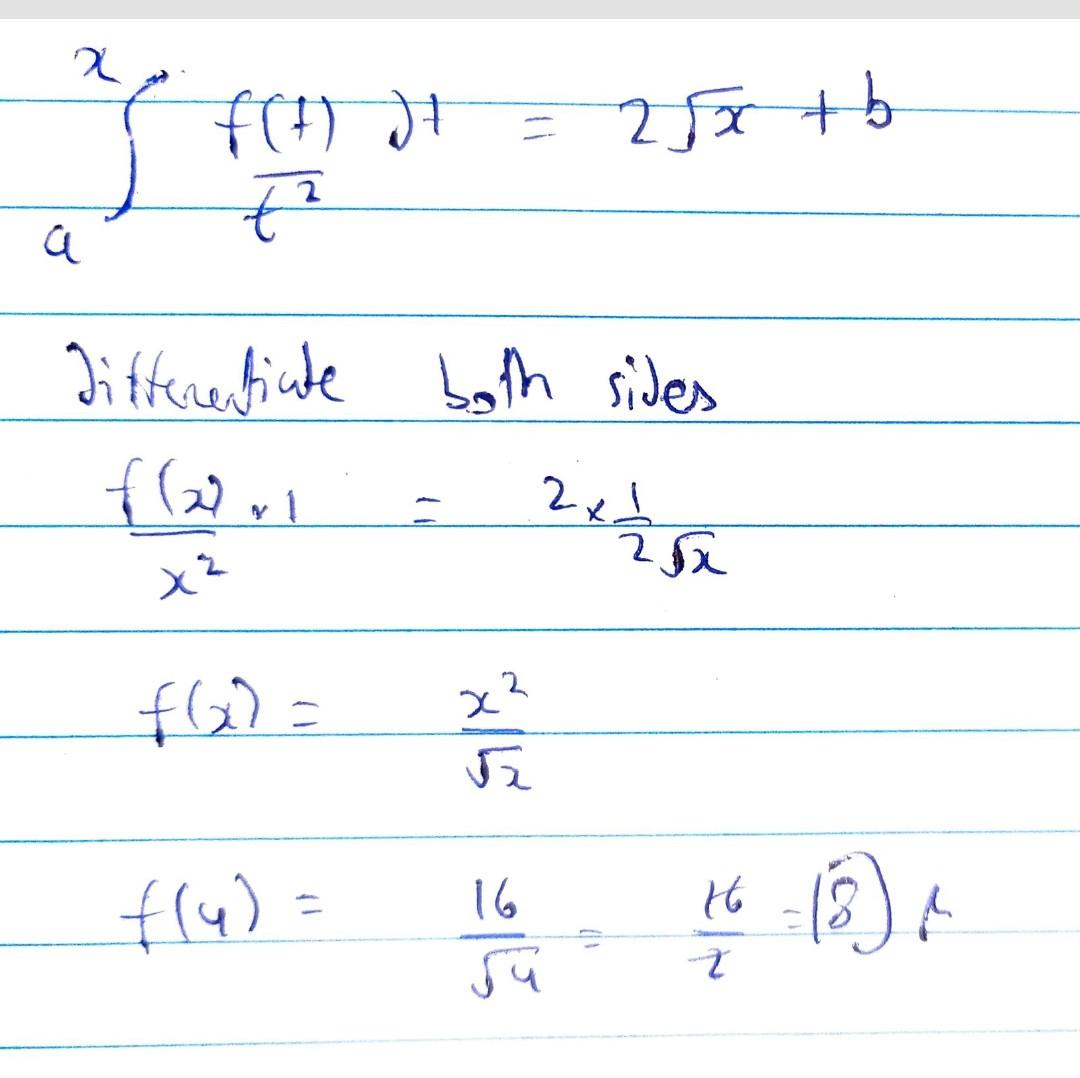 ∫ₐˣ f(t)/t² dt = 2√x + b
Differentiate both sides
f(x)/x² × 1 = 2 × 1/(2√x)
f(x) = x²/√x
f(4) = 16/√4 = 16/2 = 8